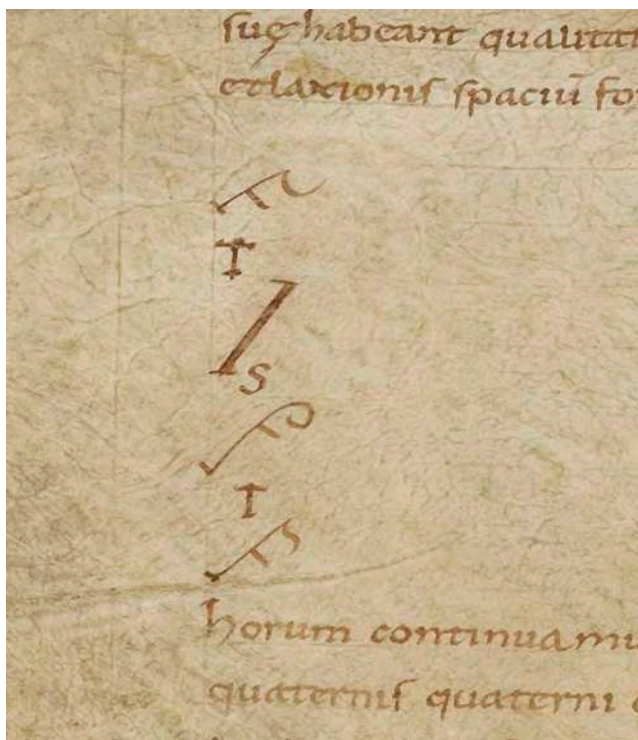 suę habeant qualitat
et laxionis spaciū for
T
S
T
horum continuamu
quaternis quaterni